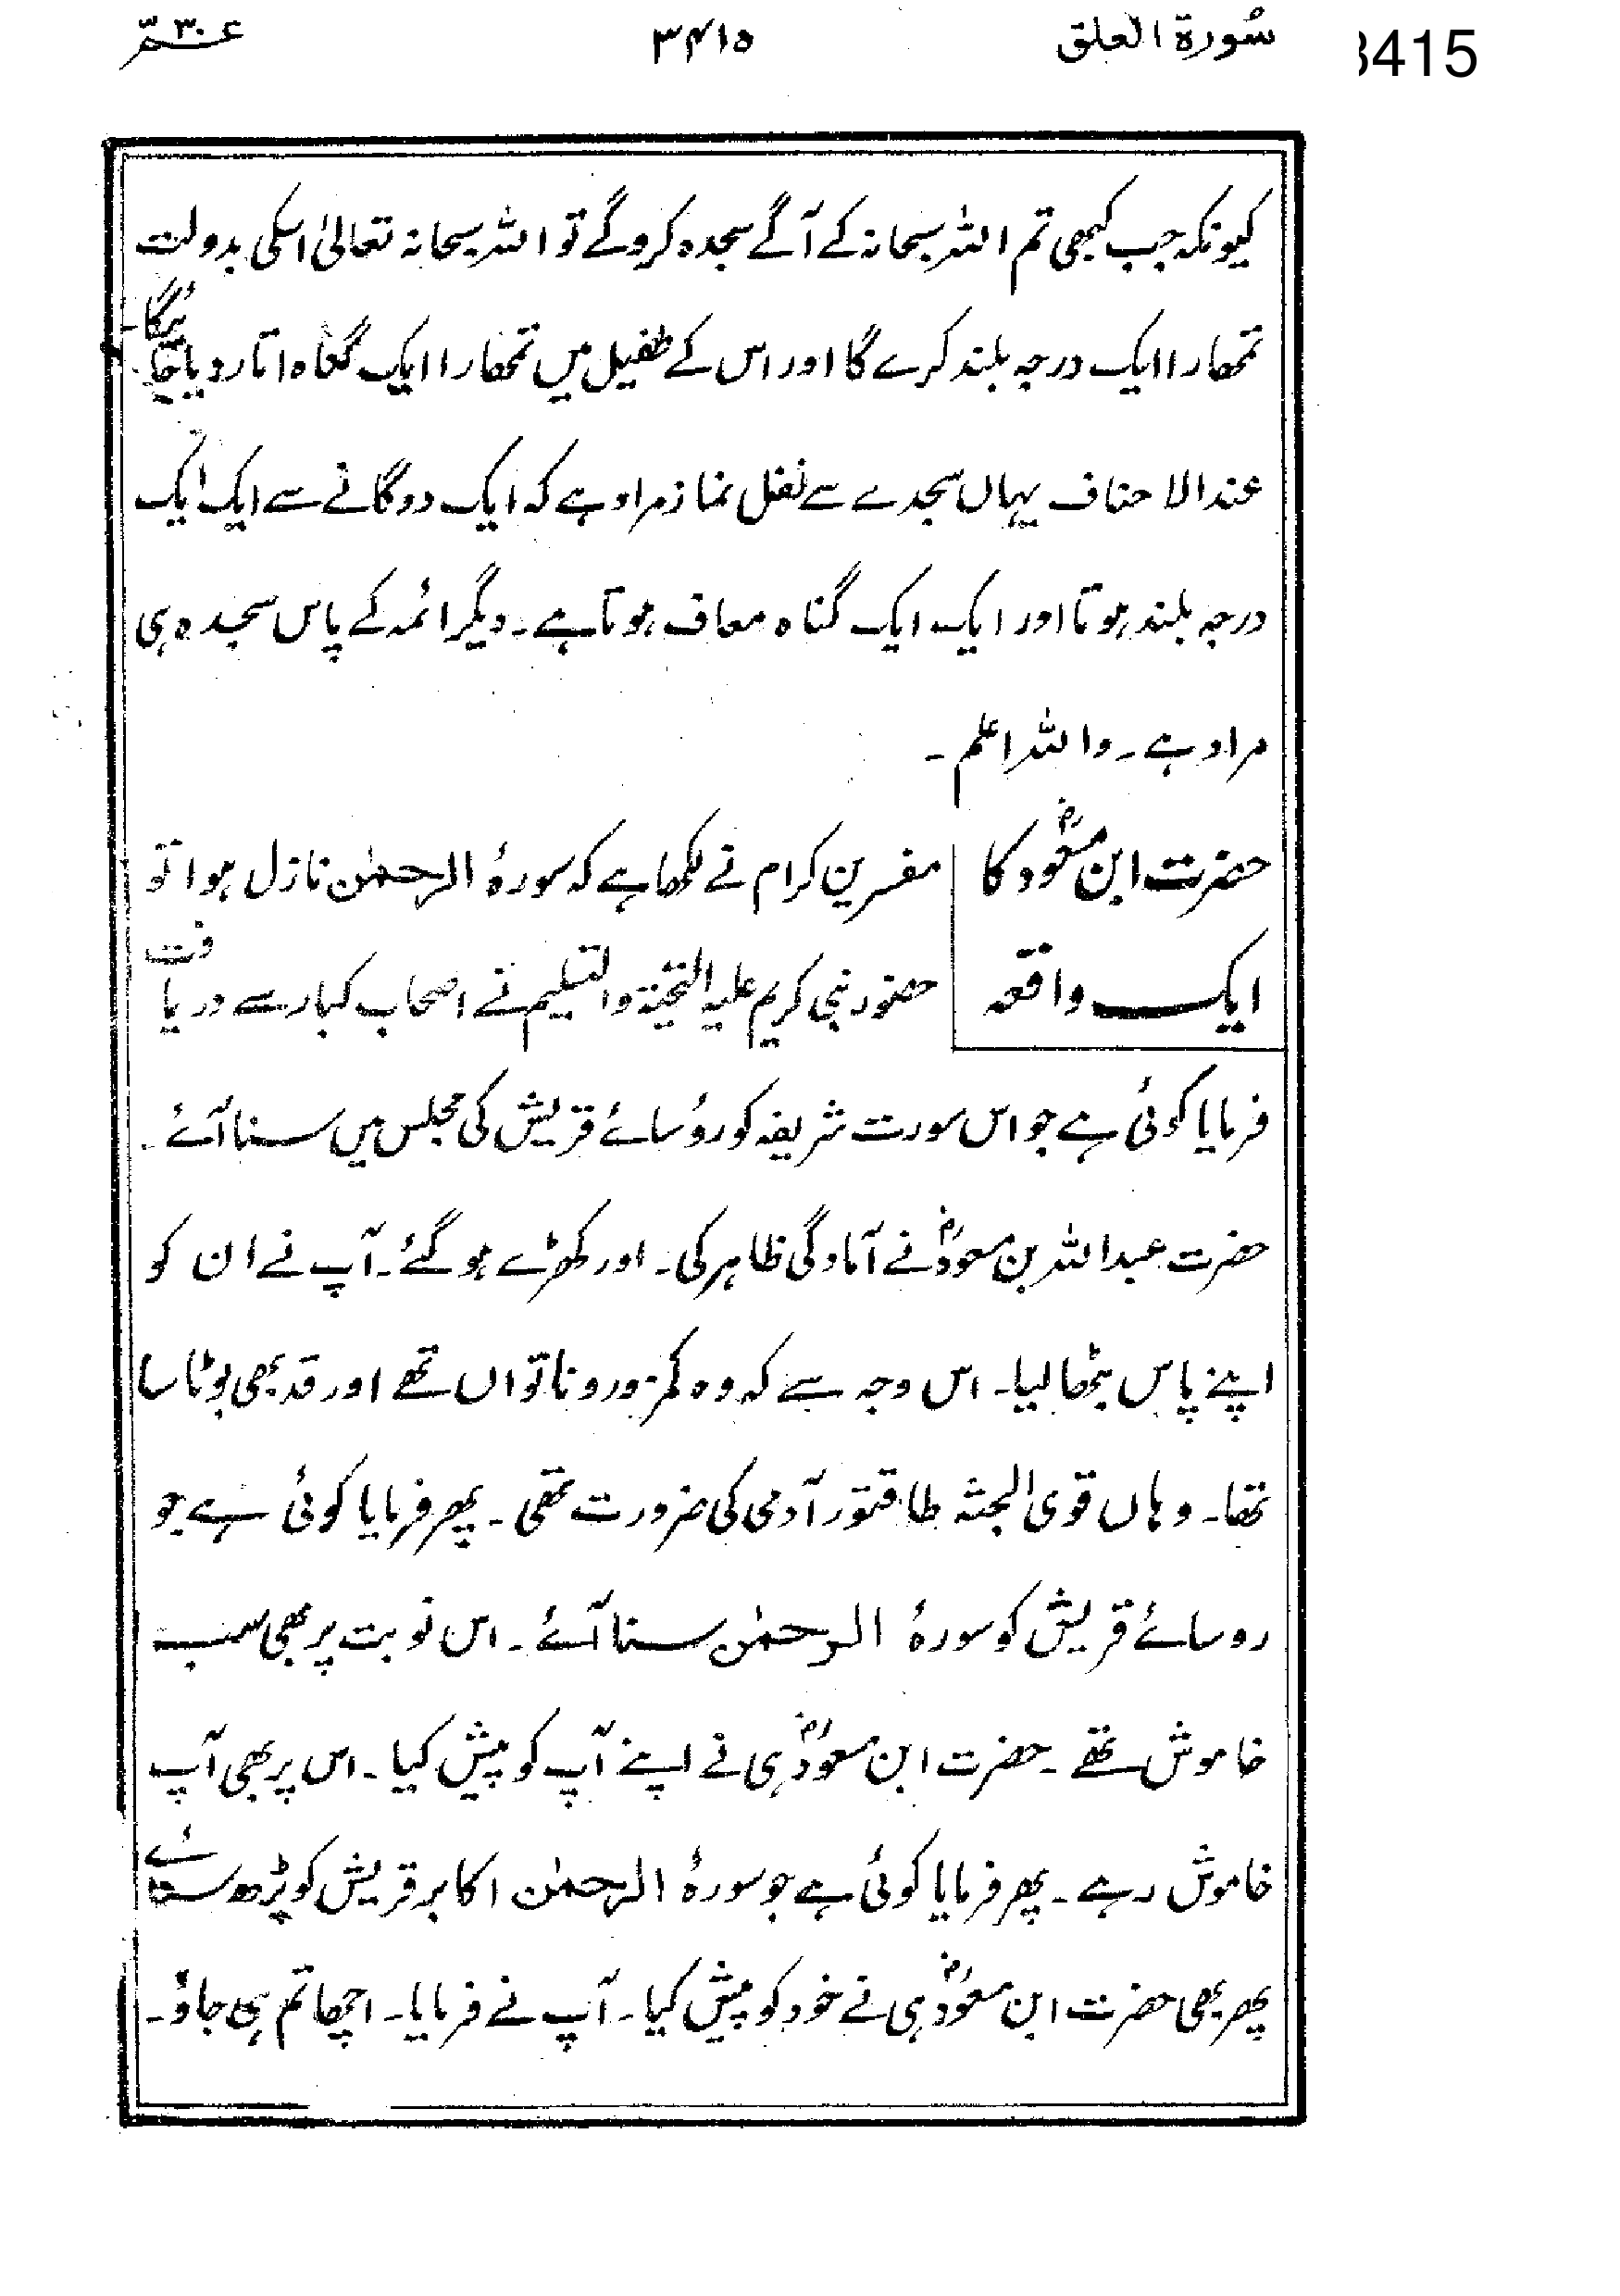 سُورة العلق ۳۴۱۵ عم ۳۰
3415
کیونکہ جب کبھی تم اللہ سبحانہ کے آگے سجدہ کروگے تو اللہ سبحانہ تعالیٰ اسکی بدولت
تمھارا ایک درجہ بلند کرے گا اور اس کے طفیل میں تمھارا ایک گناہ اتار دیا جائیگا۔
عند الاحناف یہاں سجدے سے نفل نماز مراد ہے کہ ایک دوگانے سے ایک ایک
درجہ بلند ہوتا اور ایک ایک گناہ معاف ہوتا ہے۔ دیگر ائمہ کے پاس سجدہ ہی
مراد ہے۔ واللہ اعلم۔
حضرت ابن مسعودؓ کا
ایک واقعہ
مفسرین کرام نے لکھا ہے کہ سورۂ الرحمٰن نازل ہوا تو
حضور نبی کریم علیہ التحیۃ والتسلیم نے اصحاب کبار سے دریافت
فرمایا کوئی ہے جو اس سورت شریفہ کو روُسائے قریش کی مجلس میں سنا آئے۔
حضرت عبداللہ بن مسعودؓ نے آمادگی ظاہر کی۔ اور کھڑے ہو گئے۔ آپ نے ان کو
اپنے پاس بٹھا لیا۔ اس وجہ سے کہ وہ کمزور و ناتواں تھے اور قد بھی بوٹا سا
تھا۔ وہاں قوی الجثہ طاقتور آدمی کی ضرورت تھی۔ پھر فرمایا کوئی ہے جو
روسائے قریش کو سورۂ الرحمٰن سنا آئے۔ اس نوبت پر بھی سب
خاموش تھے۔ حضرت ابن مسعودؓ ہی نے اپنے آپ کو پیش کیا۔ اس پر بھی آپ
خاموش رہے۔ پھر فرمایا کوئی ہے جو سورۂ الرحمٰن اکابر قریش کو پڑھ سنائے
پھر بھی حضرت ابن مسعودؓ ہی نے خود کو پیش کیا۔ آپ نے فرمایا۔ اچھا تم ہی جاؤ۔